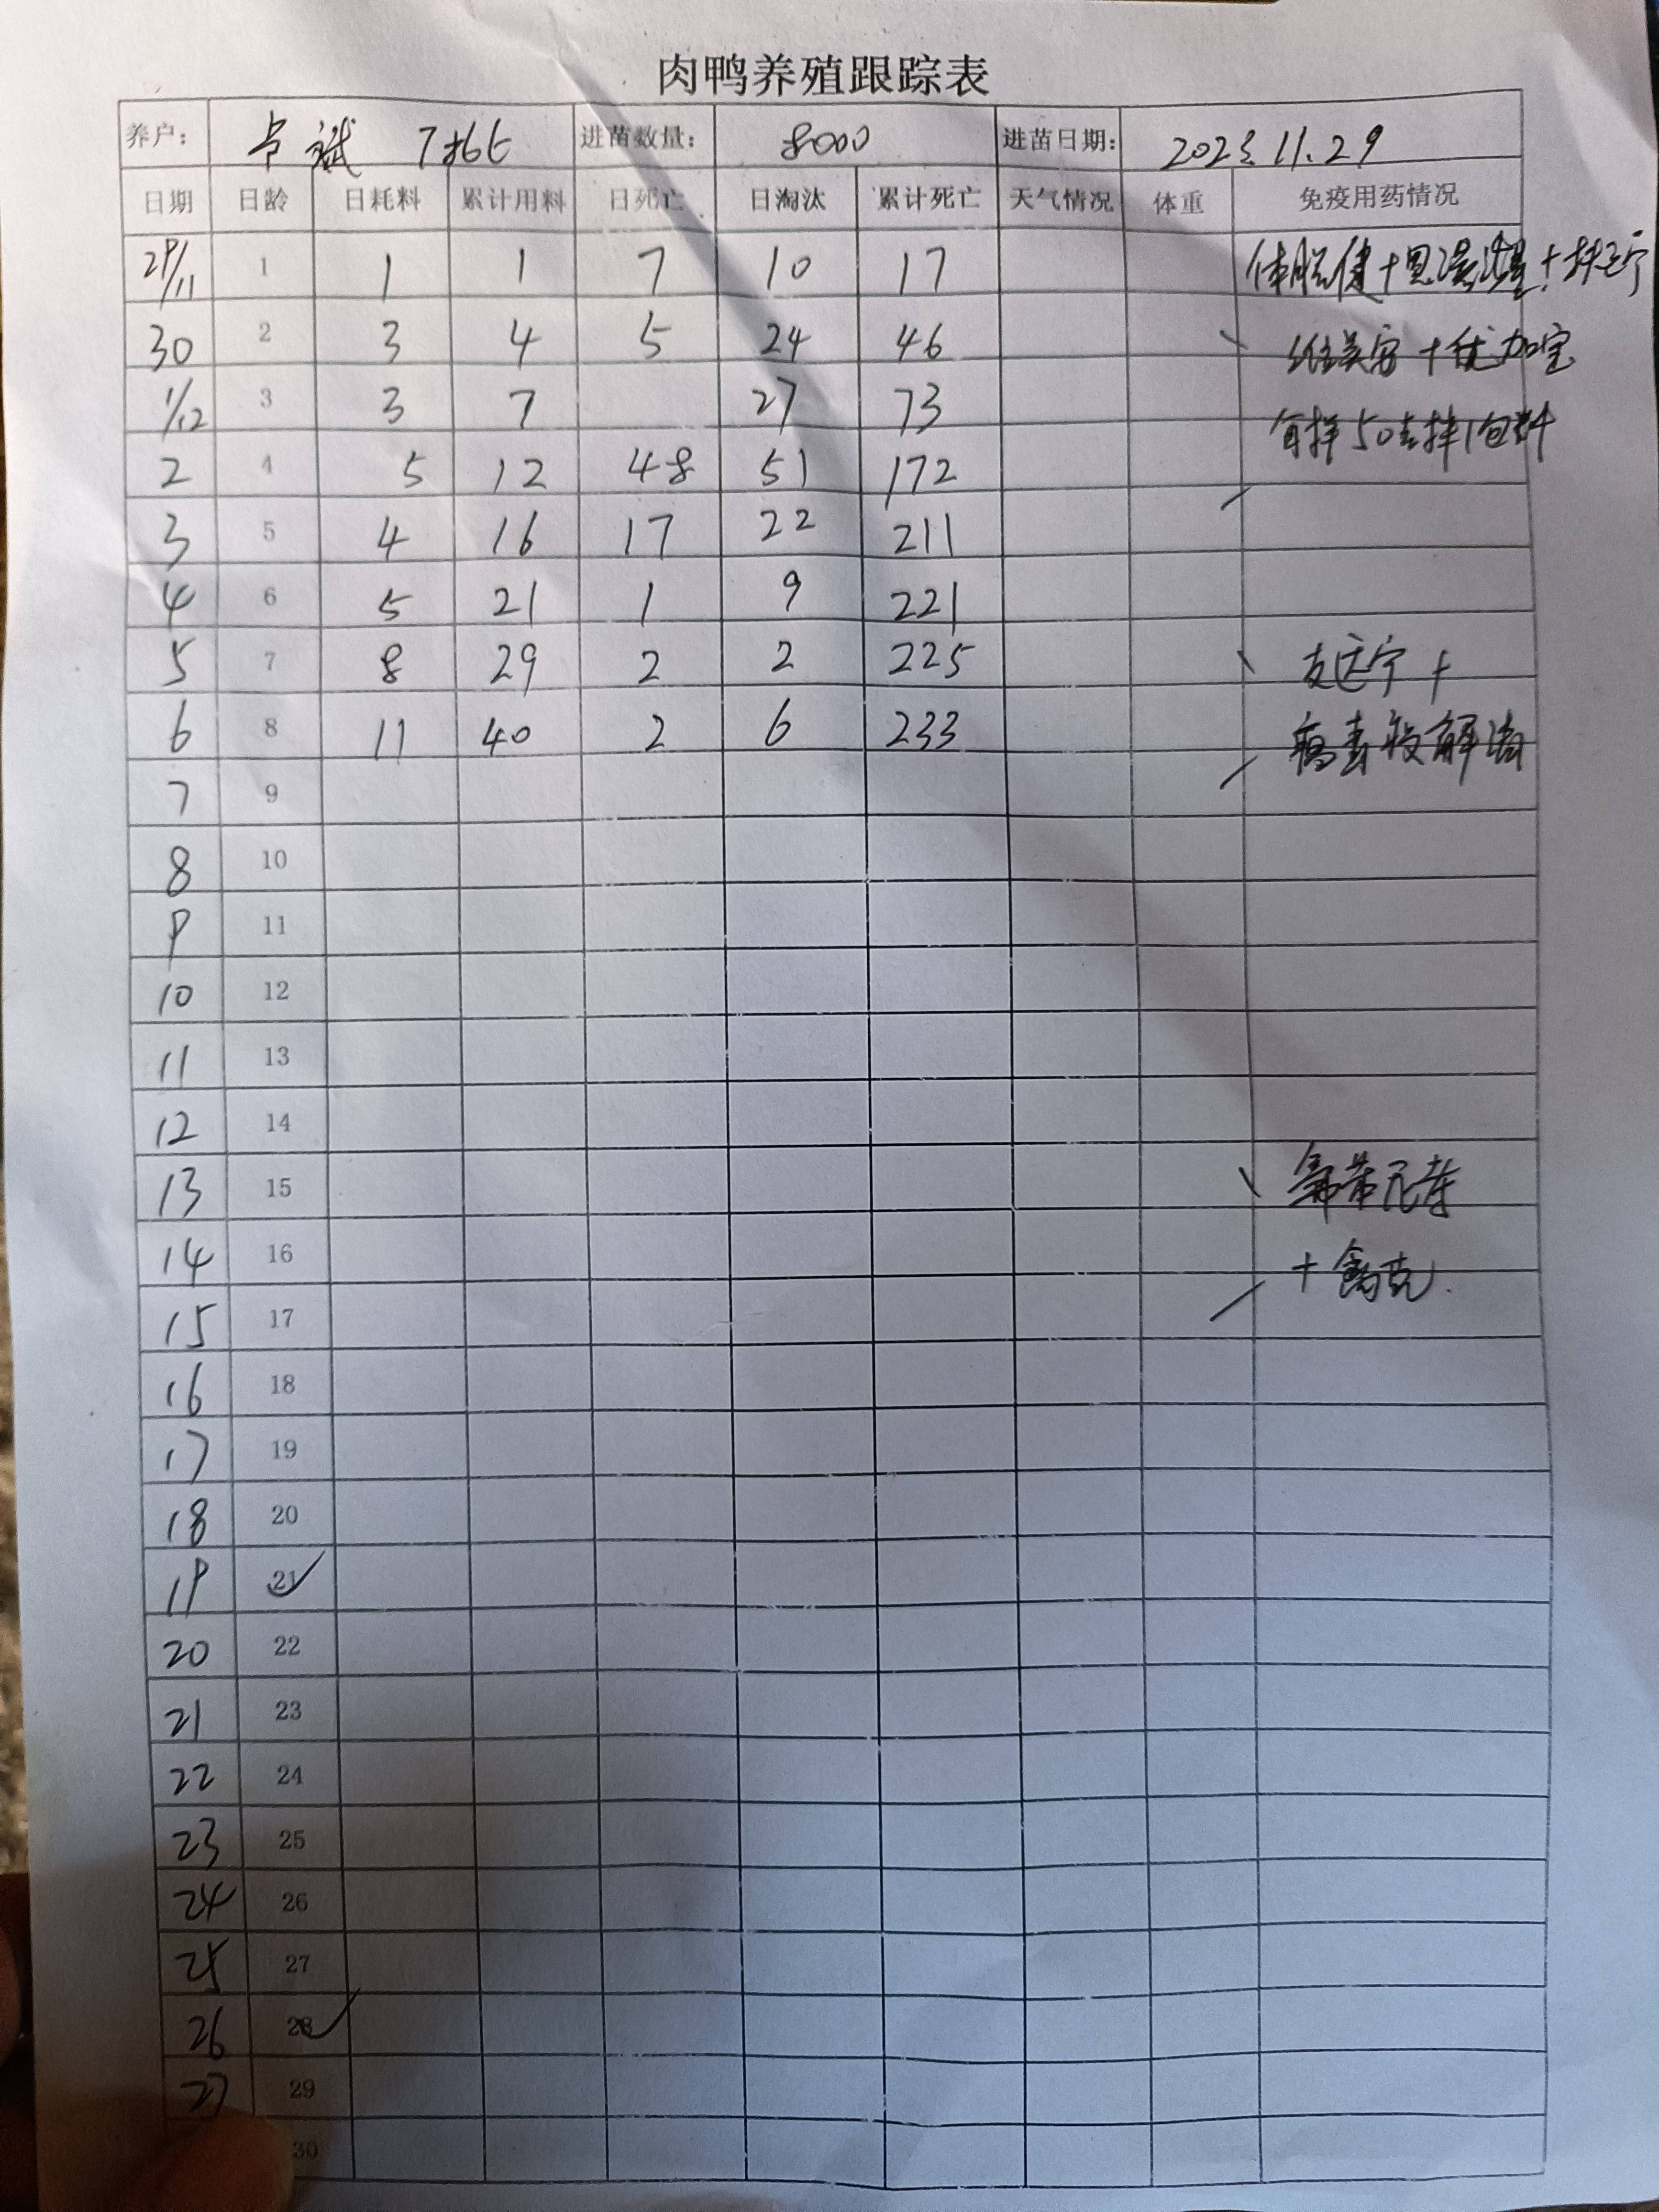 肉鸭养殖跟踪表
养户： 斌 进苗数量： 8000 进苗日期： 2023.11.29
日期 日龄 日耗料 累计用料 日死亡 日淘汰 累计死亡 天气情况 体重 免疫用药情况
29/11 1 1 1 7 10 17
30 2 3 4 5 24 46
1/12 3 3 7 27 73
2 4 5 12 48 51 172
3 5 4 16 17 22 211
4 6 5 21 1 9 221
5 7 8 29 2 2 225
6 8 11 40 2 6 233
7 9
8 10
9 11
10 12
11 13
12 14
13 15
14 16
15 17
16 18
17 19
18 20
19 21
20 22
21 23
22 24
23 25
24 26
25 27
26 28
27 29
30